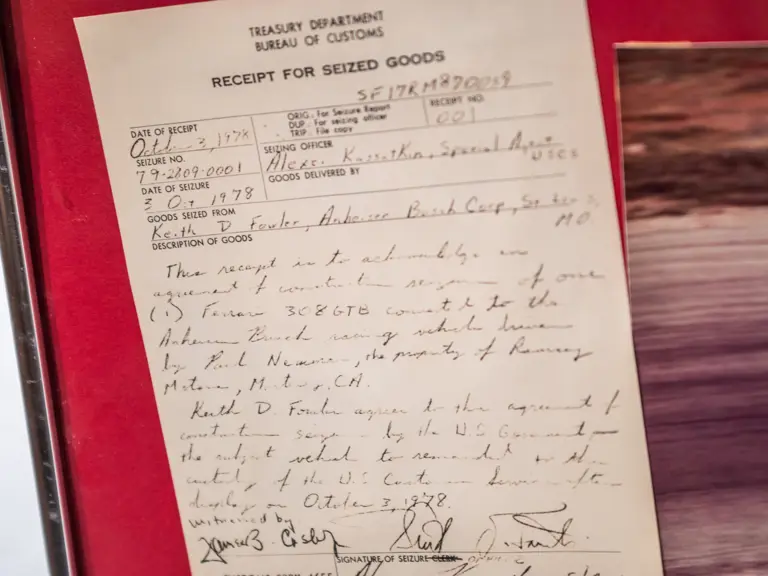 TREASURY DEPARTMENT
BUREAU OF CUSTOMS
RECEIPT FOR SEIZED GOODS
SF17RM870059
DATE OF RECEIPT
ORIG.: For Seizure Report
DUP.: For seizing officer
TRIP.: File copy
RECEIPT NO.
001
October 3, 1978
SEIZURE NO.
SEIZING OFFICER
79-2809-0001
Kassatkin, Special Agent
USCS
DATE OF SEIZURE
GOODS DELIVERED BY
3 Oct 1978
GOODS SEIZED FROM
Keith D Fowler, Anheuser Busch Corp, St
MO
DESCRIPTION OF GOODS
This receipt is to acknowledge an
agreement of constructive seizure of one
(1) Ferrari 308GTB to the
Anheuser Busch racing vehicle driven
by Paul Newman, the property of Ramsey
Motors, CA.
Keith D. Fowler agrees to the agreement of
constructive by the U.S Government
the subject vehicle to remanded to the
custody of the U.S Customs Service after
display on October 3, 1978.
witnessed by
SIGNATURE OF SEIZURE CLERK